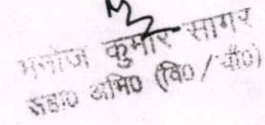 मनोज कुमार सागर
सहा० अभि० (वि०/यॉ०)